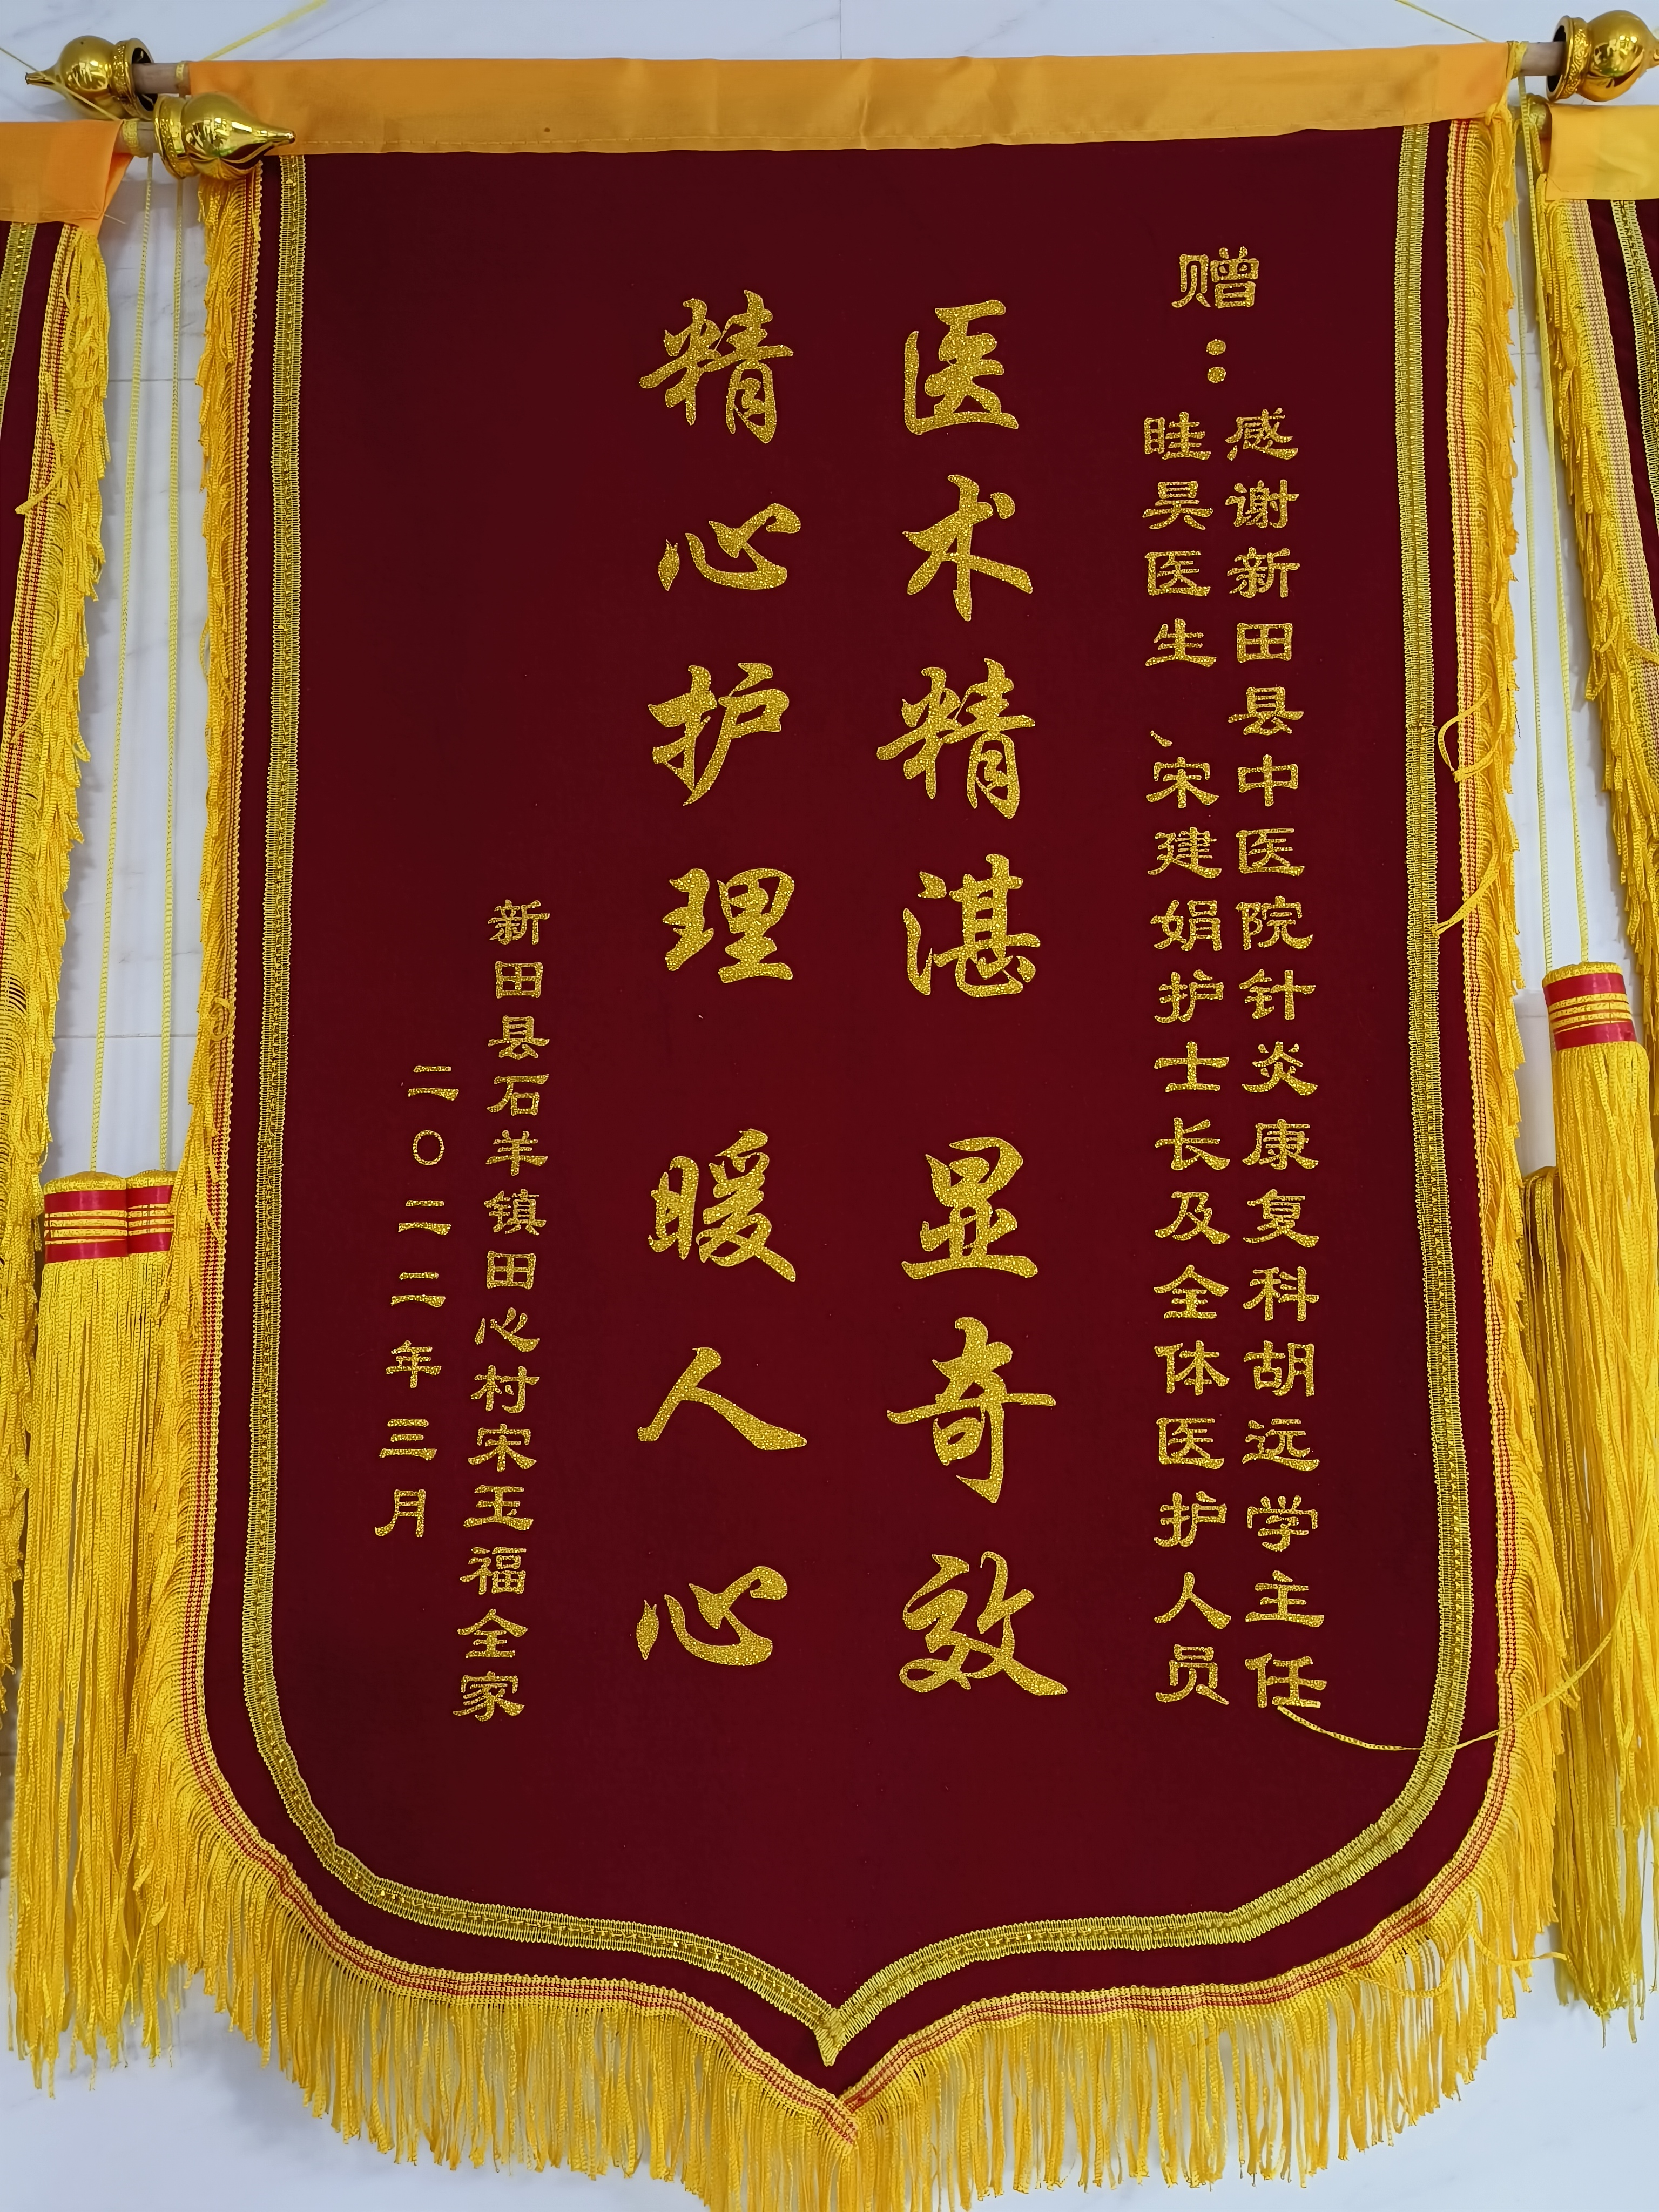 赠：
感谢新田县中医院针炎康复科胡远学主任
眭昊医生、宋建娟护士长及全体医护人员
医术精湛 显奇效
精心护理 暖人心
新田县石羊镇田心村宋玉福全家
二〇二二年三月